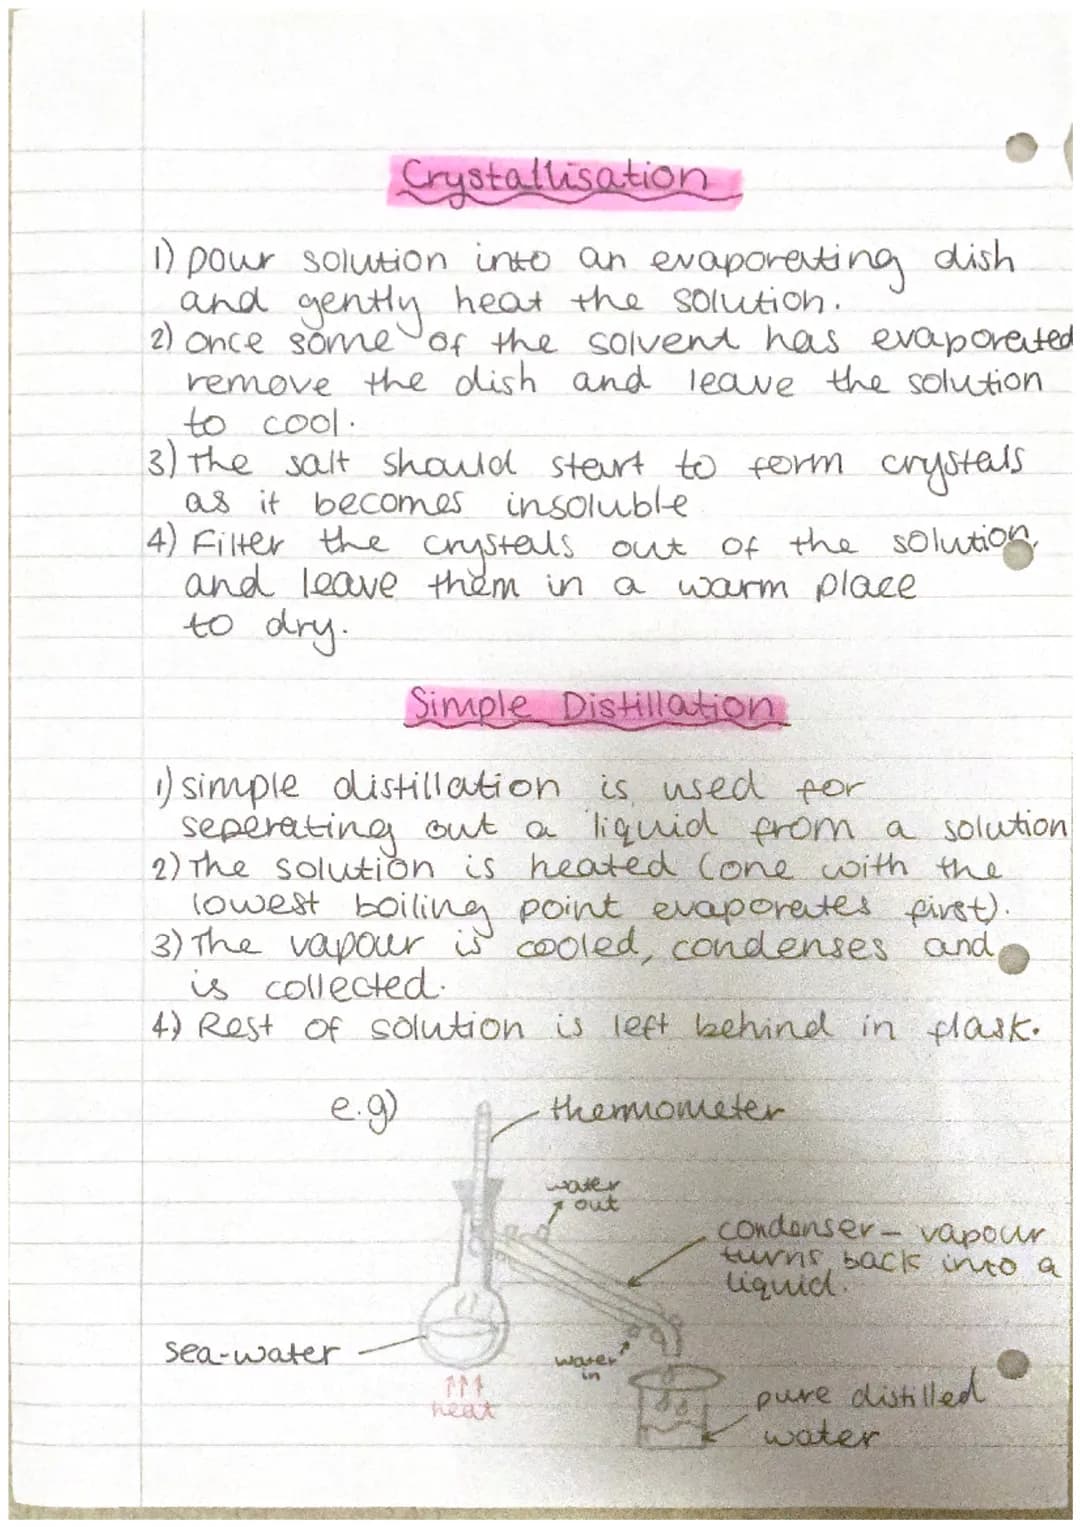 Crystallisation
1) pour solution into an evaporating dish
and gently heat the solution.
2) once some of the solvent has evaporated
remove the dish and leave the solution
to cool.
3) The salt should start to form crystals
as it becomes insoluble
4) Filter the crystals out of the solution,
and leave them in a warm place
to dry.
Simple Distillation
1) simple distillation is used for
seperating out a liquid from a solution
2) The solution is heated (one with the
lowest boiling point evaporates first).
3) The vapour is cooled, condenses and
is collected.
4) Rest of solution is left behind in flask.
e.g)
thermometer
water
out
condenser - vapour
turns back into a
liquid.
sea-water
water
in
heat
pure distilled
water